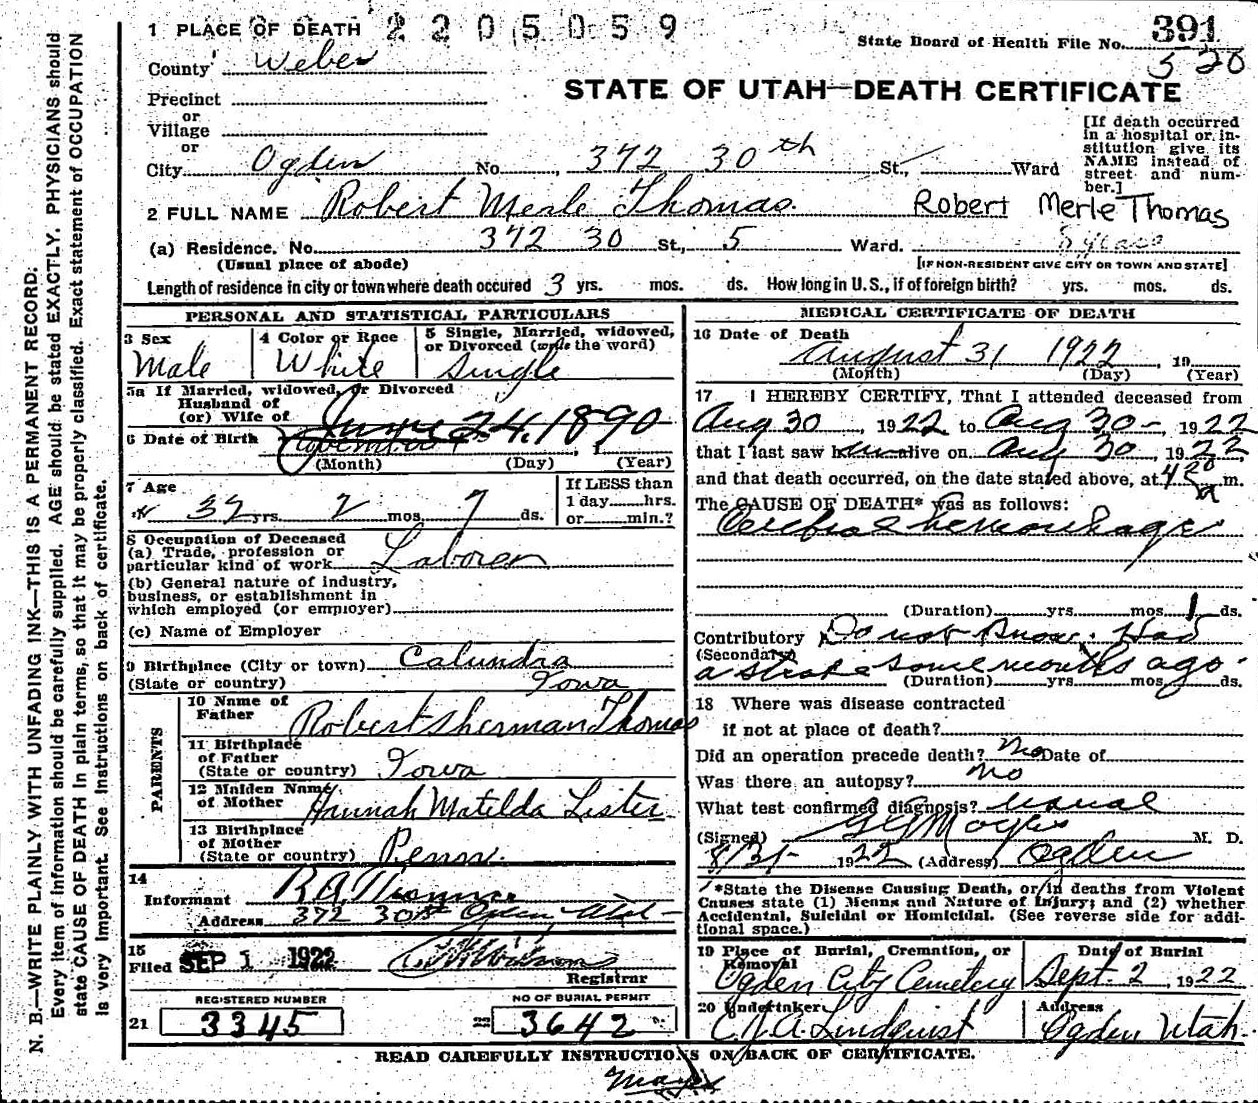 1 PLACE OF DEATH 2205059
State Board of Health File No. 391
County Weber
STATE OF UTAH—DEATH CERTIFICATE
Precinct
or
Village
or
City Ogden No. 372 30th St., Ward
[If death occurred in a hospital or institution give its NAME instead of street and number.]
2 FULL NAME Robert Merle Thomas. Robert Merle Thomas
(a) Residence. No. 372 30 St., 5 Ward.
(Usual place of abode) [IF NON-RESIDENT GIVE CITY OR TOWN AND STATE]
Length of residence in city or town where death occured 3 yrs. mos. ds. How long in U.S., if of foreign birth? yrs. mos. ds.
PERSONAL AND STATISTICAL PARTICULARS
3 Sex
Male
4 Color or Race
White
5 Single, Married, widowed, or Divorced (write the word)
Single
5a If Married, widowed, or Divorced
Husband of
(or) Wife of
6 Date of Birth June 24, 1890
(Month) (Day) (Year)
7 Age
32 yrs. 2 mos. 7 ds.
If LESS than
1 day hrs.
or min.?
8 Occupation of Deceased
(a) Trade, profession or
particular kind of work Laborer
(b) General nature of industry,
business, or establishment in
which employed (or employer)
(c) Name of Employer
9 Birthplace (City or town) Calundra
(State or country) Iowa
PARENTS
10 Name of
Father Robert Sherman Thomas
11 Birthplace
of Father
(State or country) Iowa
12 Maiden Name
of Mother Hannah Matilda Lister
13 Birthplace
of Mother
(State or country) Penn.
14
Informant R.A. Thomas
Address 372 30th Ogden, Utah
15
Filed SEP 1 1922
Registrar
REGISTERED NUMBER
21 3345
NO OF BURIAL PERMIT
22 3642
MEDICAL CERTIFICATE OF DEATH
16 Date of Death
August 31 1922, 19
(Month) (Day) (Year)
17 I HEREBY CERTIFY, That I attended deceased from
Aug 30, 1922 to Aug 30, 1922
that I last saw him alive on Aug 30, 1922,
and that death occurred, on the date stated above, at 4 20 a m.
The CAUSE OF DEATH* was as follows:
Cerebral hemorrhage
(Duration) yrs. mos. 1 ds.
Contributory Do not know. Had
(Secondary)
a stroke some months ago.
(Duration) yrs. mos. ds.
18 Where was disease contracted
if not at place of death?
Did an operation precede death? No Date of
Was there an autopsy? no
What test confirmed diagnosis? usual
(Signed) M. D.
8/31- 1922 (Address) Ogden
*State the Disease Causing Death, or in deaths from Violent
Causes state (1) Means and Nature of Injury; and (2) whether
Accidental, Suicidal or Homicidal. (See reverse side for addi-
tional space.)
19 Place of Burial, Cremation, or
Removal
Ogden City Cemetery
Date of Burial
Sept. 2, 1922
20 Undertaker
C.J.A. Lindquist
Address
Ogden Utah.
READ CAREFULLY INSTRUCTIONS ON BACK OF CERTIFICATE.
N. B—WRITE PLAINLY WITH UNFADING INK—THIS IS A PERMANENT RECORD.
Every item of information should be carefully supplied. AGE should be stated EXACTLY. PHYSICIANS should
state CAUSE OF DEATH in plain terms, so that it may be properly classified. Exact statement of OCCUPATION
is very important. See Instructions on back of certificate.